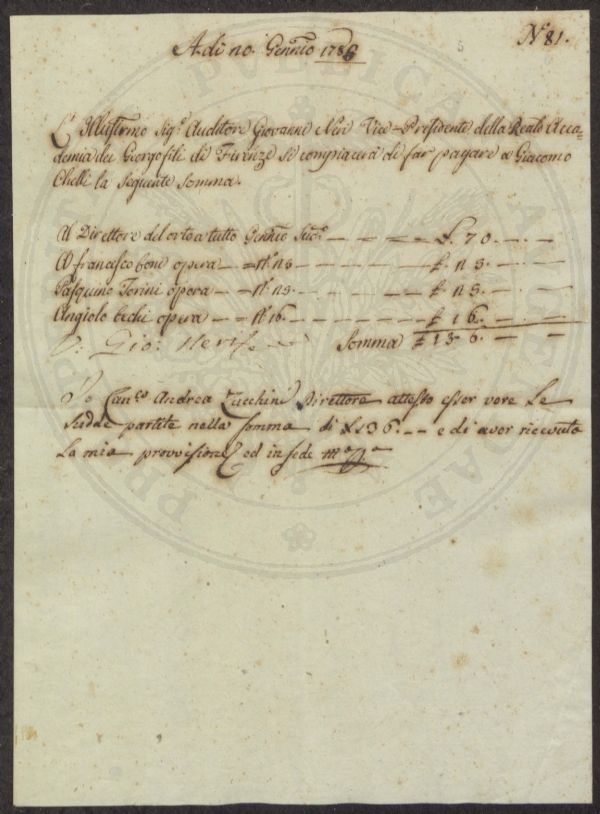 N.° 81.
A dì 20. Genn:io 1786
L'Illustrmo Sig.r Auditore Giovanni Neri Vice-Presidente della Reale Acca=
demia dei Giorgofili di Firenze si compiacerà di far pagare a Giacomo
Chelli la seguente somma.
Al Direttore del orto a tutto Gennio Sud.o — — — £. 70. — —
A francesco boni opera — N.° 25 — — — £. 25. — —
Pasquino Torini opera — N.° 25. — — — £. 25. — —
Angiolo cechi opera — N.° 16. — — — £. 16. — —
V: Gio: Neri Somma £ 136. — —
Io Can.co Andrea Zucchini Direttore attesto esser vere Le
Sudde partite nella somma di £ 136. — — e di aver ricevuto
La mia provvisione ed in fede m.o p.a
PROSPERITATI PVBLICAE AVGENDAE